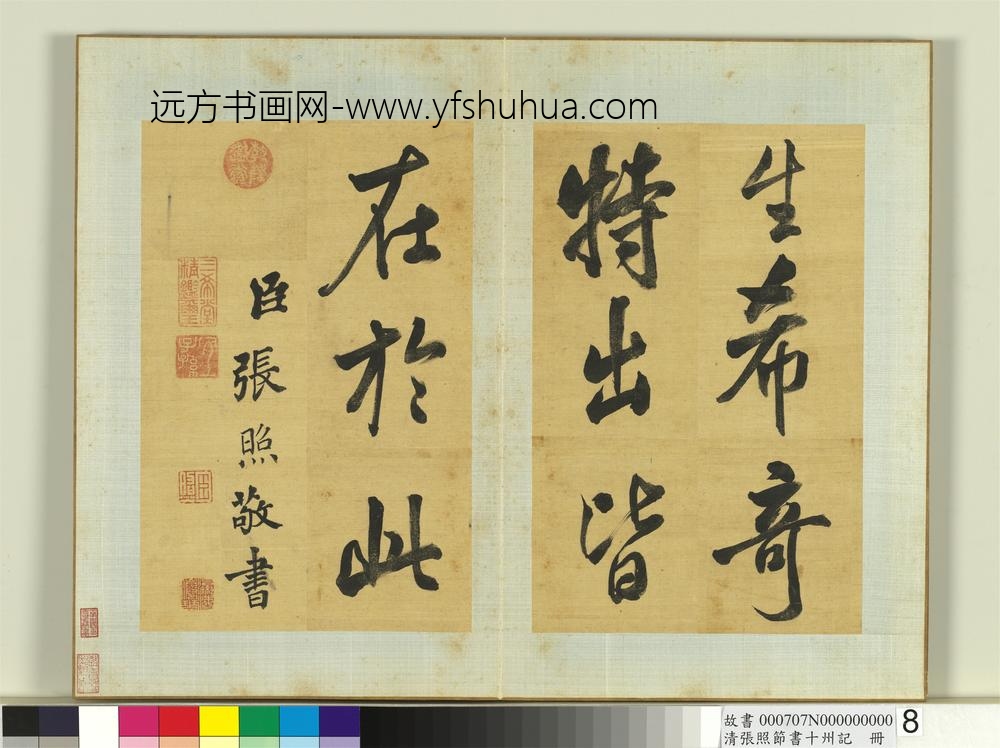 远方书画网-www.yfshuhua.com
生希奇
特出皆
在於此
臣張照敬書
三希堂精鑑璽
宜子孫
故書 000707N000000000 8
清張照節書十州記 冊